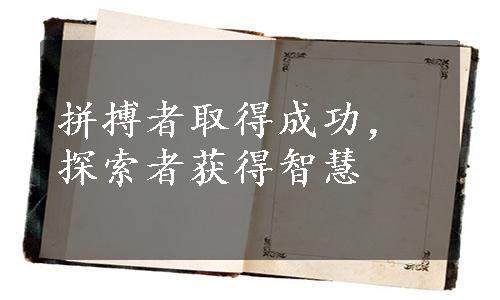 拼搏者取得成功，
探索者获得智慧